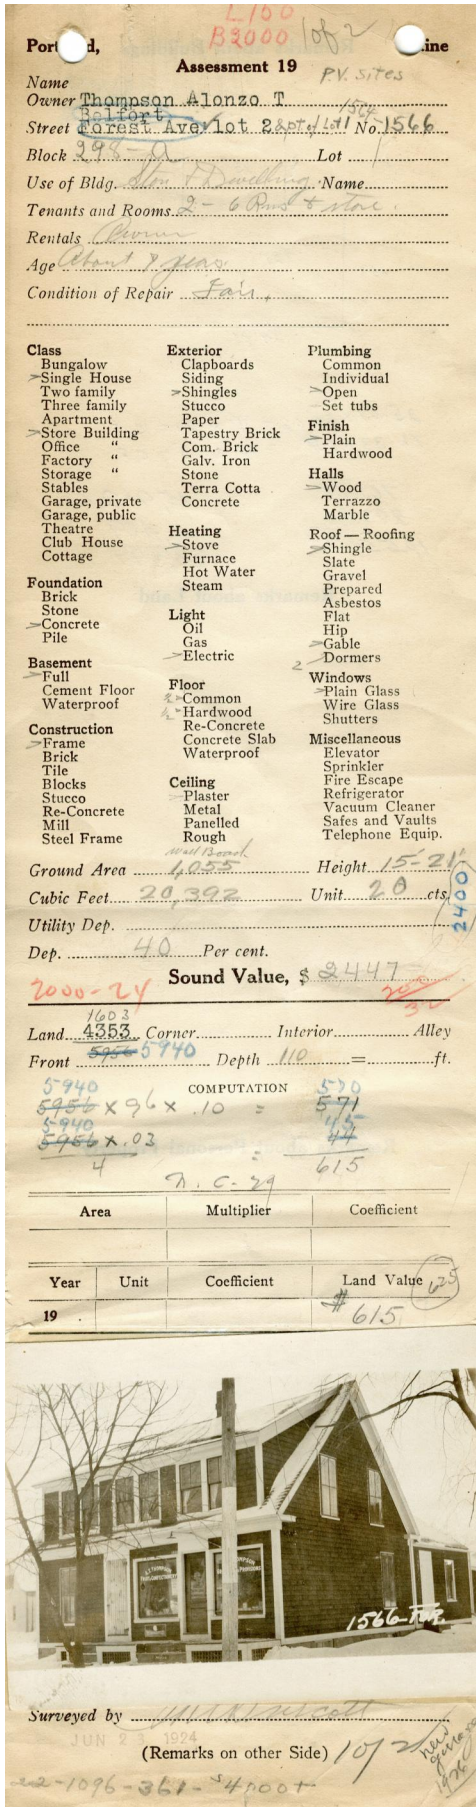 L100
B2000 1 of 2
Portland, Maine
Assessment 19
P.V. Sites
Name
Owner Thompson Alonzo T
Belfort 1564
Street Forest Ave lot 2 & pt of Lot 1 No. 1566
Block 298-A Lot 1
Use of Bldg. Store & Dwelling Name
Tenants and Rooms 2 - 6 Rms & store.
Rentals Owner
Age About 9 years
Condition of Repair Fair.
Class
Bungalow
Single House
Two family
Three family
Apartment
Store Building
Office "
Factory "
Storage "
Stables
Garage, private
Garage, public
Theatre
Club House
Cottage
Foundation
Brick
Stone
Concrete
Pile
Basement
Full
Cement Floor
Waterproof
Construction
Frame
Brick
Tile
Blocks
Stucco
Re-Concrete
Mill
Steel Frame
Exterior
Clapboards
Siding
Shingles
Stucco
Paper
Tapestry Brick
Com. Brick
Galv. Iron
Stone
Terra Cotta
Concrete
Heating
Stove
Furnace
Hot Water
Steam
Light
Oil
Gas
Electric
Floor
½ Common
½ Hardwood
Re-Concrete
Concrete Slab
Waterproof
Ceiling
Plaster
Metal
Panelled
Rough
Wall Board
Plumbing
Common
Individual
Open
Set tubs
Finish
Plain
Hardwood
Halls
Wood
Terrazzo
Marble
Roof — Roofing
Shingle
Slate
Gravel
Prepared
Asbestos
Flat
Hip
Gable
2 Dormers
Windows
Plain Glass
Wire Glass
Shutters
Miscellaneous
Elevator
Sprinkler
Fire Escape
Refrigerator
Vacuum Cleaner
Safes and Vaults
Telephone Equip.
Ground Area 1,055 Height 15-21
Cubic Feet 20,392 Unit 20 cts.
2400
Utility Dep.
Dep. 40 Per cent.
Sound Value, $ 2447
2000-24
1603
Land 4353 Corner Interior Alley
Front 5956 5940 Depth 110 = ft.
COMPUTATION
5940 570
5956 x 96 x .10 = 571
5940 45
5956 x .03 = 44
4 615
N.C-29
Area Multiplier Coefficient
Year Unit Coefficient Land Value 625
19 $ 615
A.T. THOMPSON
1566-FOR.
Surveyed by
JUN 23 1924
(Remarks on other Side) 1 of 2
new garage 1926
22-1096-361-$4000+